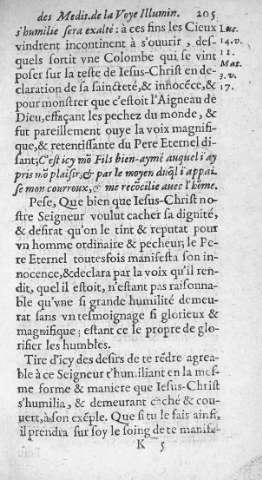 des Medit. de la Voye Illumin. 205
s'humilie sera exalté: à ces fins les Cieux
vindrent incontinent à s'ouurir, des-
quels sortit vne Colombe qui se vint
poser sur la teste de Iesus-Christ en de-
claration de sa saincteté, & innocēce, &
pour monstrer que c'estoit l'Aigneau de
Dieu, effaçant les pechez du monde, &
fut pareillement ouye la voix magnifi-
que, & retentissante du Pere Eternel di-
sant; C'est icy mō Fils bien-aymé auquel i'ay
pris mō plaisir, & par le moyen duql i'appai-
se mon courroux, & me recōcilie auec l'hōme.
Pese, Que bien que Iesus-Christ no-
stre Seigneur voulut cacher sa dignité,
& desirat qu'on le tint & reputat pour
vn homme ordinaire & pecheur, le Pe-
re Eternel toutesfois manifesta son in-
nocence, & declara par la voix qu'il ren-
dit, quel il estoit, n'estant pas raisonna-
ble qu'vne si grande humilité demeu-
rat sans vn tesmoignage si glorieux &
magnifique; estant ce le propre de glo-
rifier les humbles.
Tire d'icy des desirs de te rēdre agrea-
ble à ce Seigneur t'humiliant en la mes-
me forme & maniere que Iesus-Christ
s'humilia, & demeurant caché & cou-
uert, à son exēple. Que si tu le fais ainsi,
il prendra sur soy le soing de te manife-
K 5
Luc.
14. v.
11.
Mat.
3. v.
17.